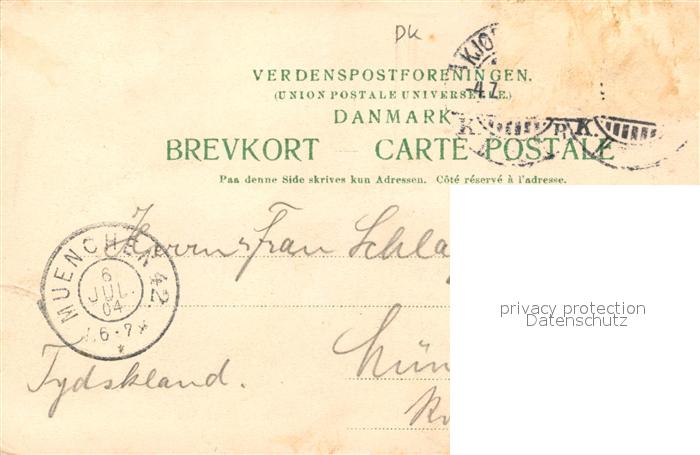 DK
KJO
4.7.
VERDENSPOSTFORENINGEN.
(UNION POSTALE UNIVERSELLE.)
DANMARK
K K.
BREVKORT — CARTE POSTALE
Paa denne Side skrives kun Adressen. Côté réservé à l'adresse.
Herrn & Frau Schla
MUENCHEN 42.
6
JUL.
04
6-7
privacy protection
Datenschutz
Mün
Tydskland.